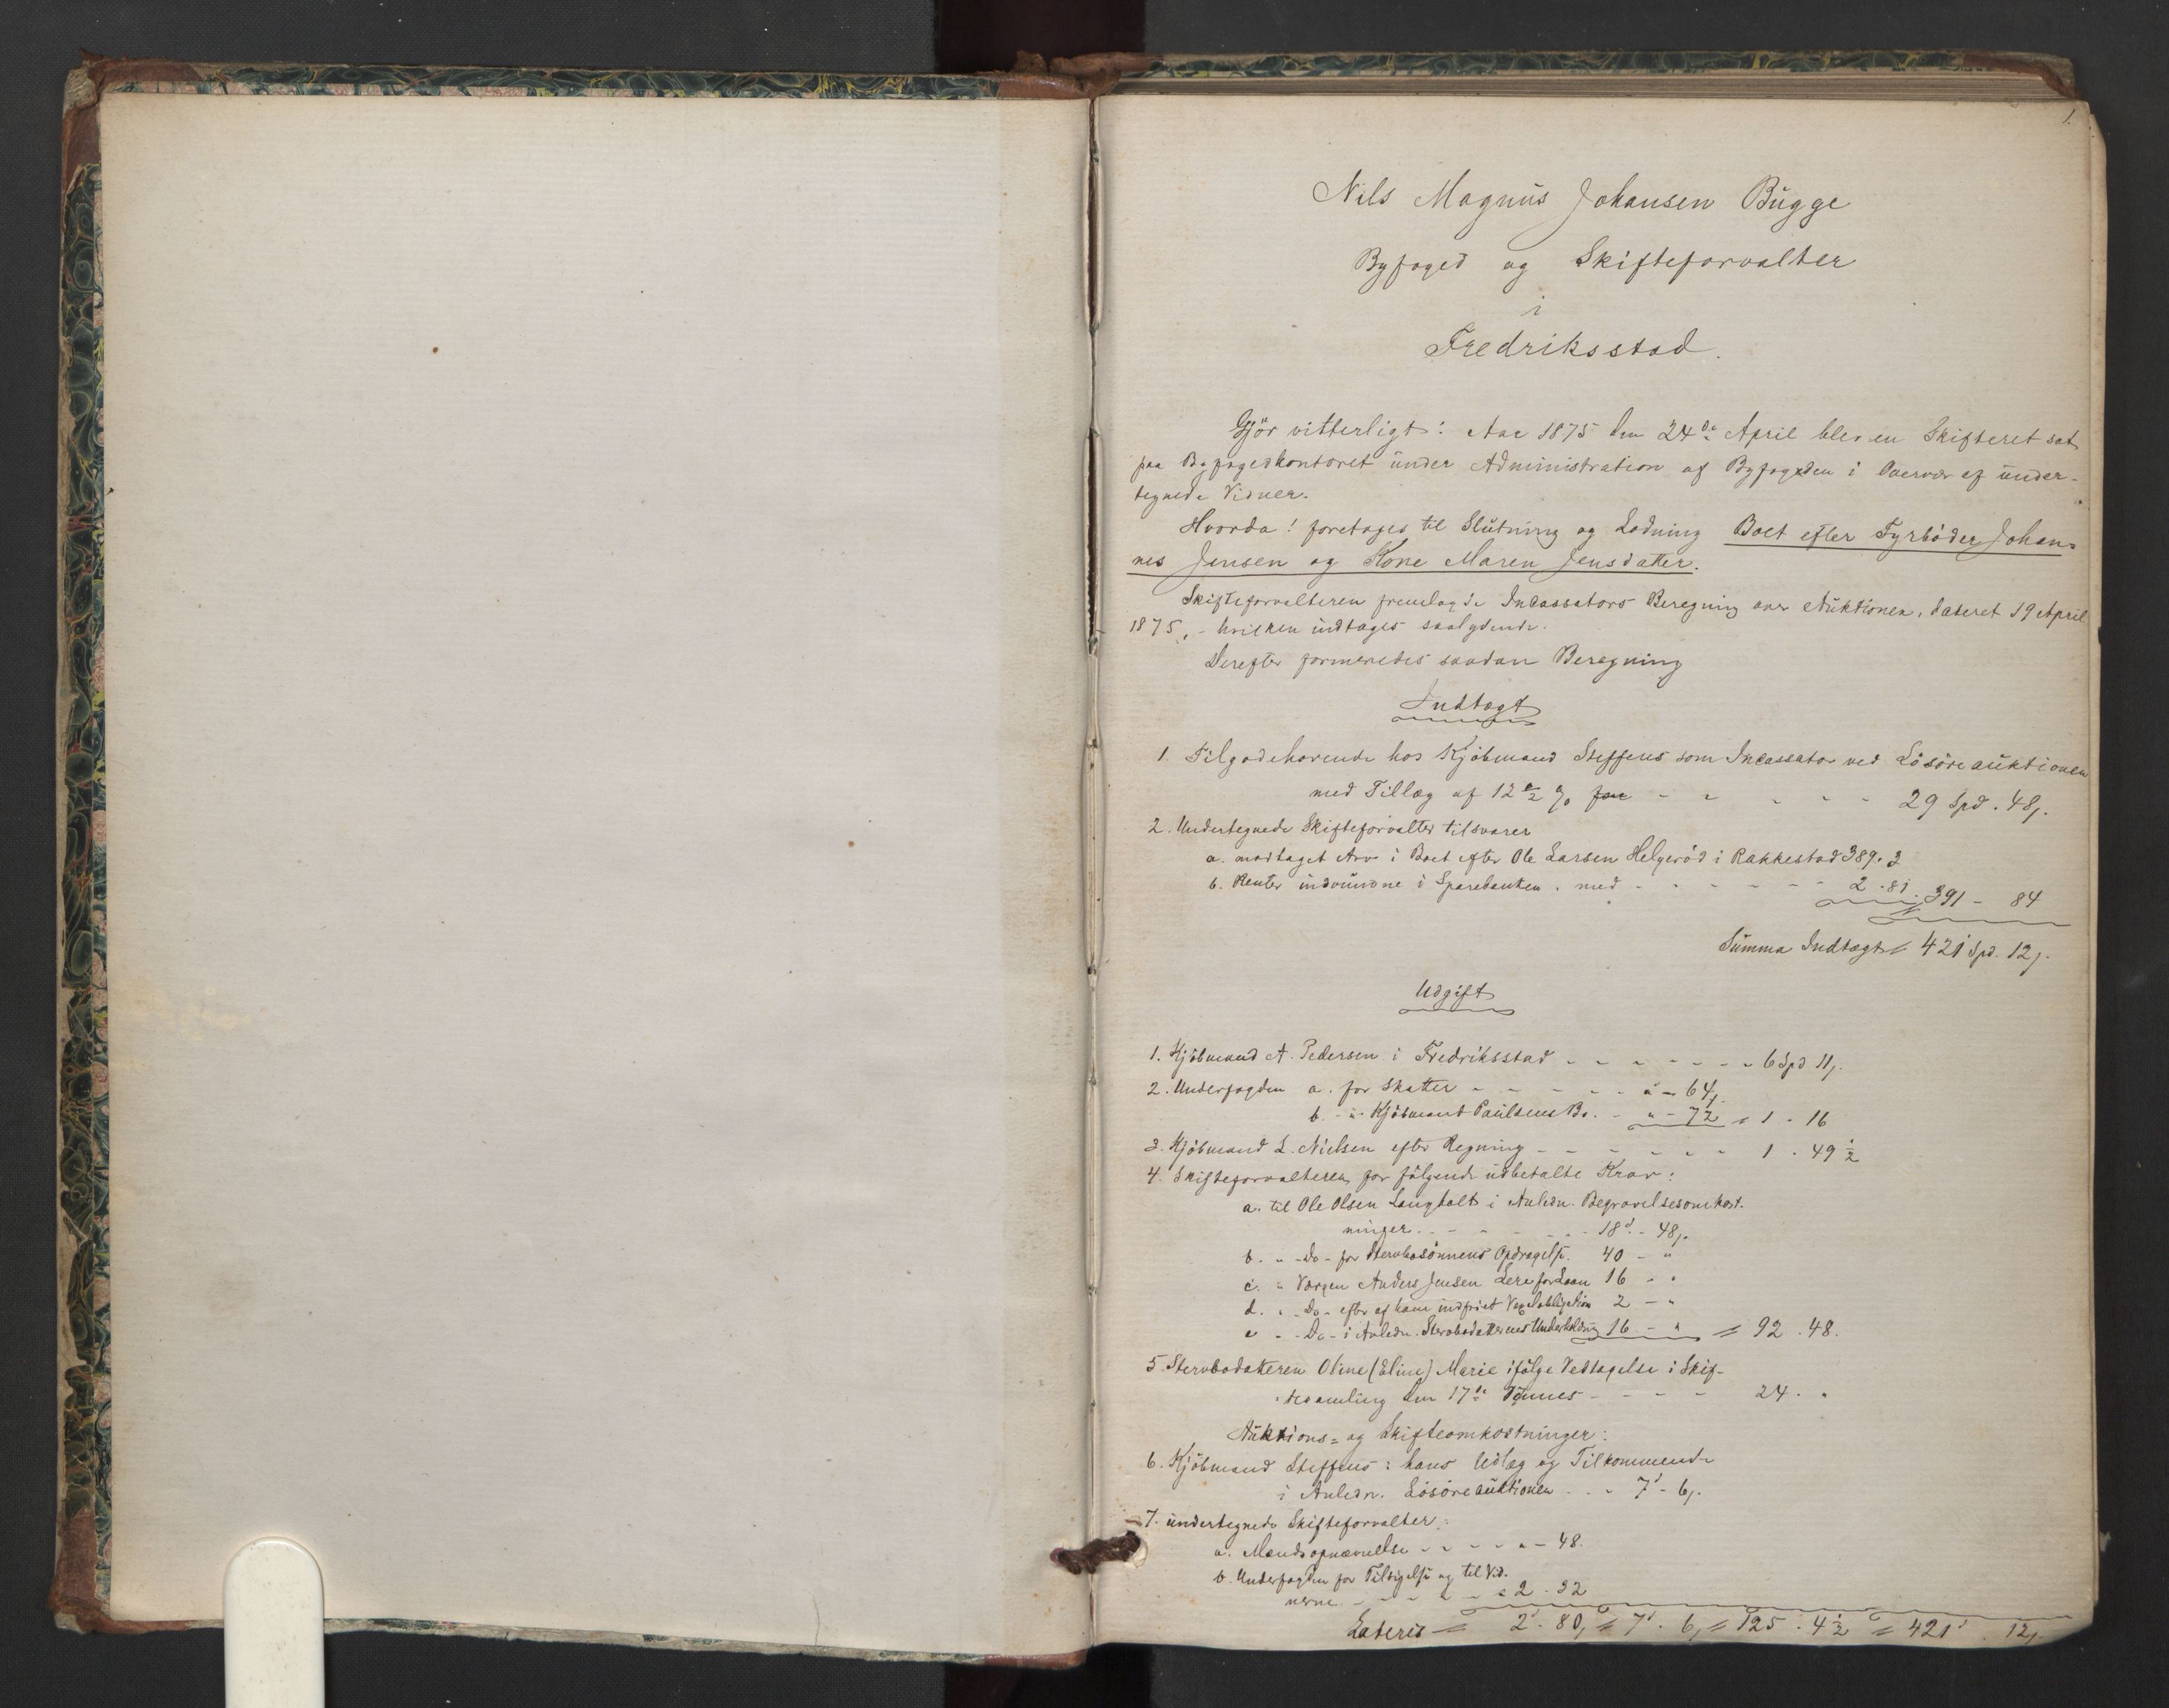 1.
Nils Magnus Johansen Bugge
Byfoged og Skifteforvalter
i
Fredriksstad.
Gjör vitterligt: Aar 1875 den 24de April blev en Skifteret sat
paa Byfogedkontoret under Administration af Byfogden i Overvær af under-
tegnede Vidner.
Hvorda! foretages til Slutning og Lodning Boet efter Fyrböder Johan-
nes Jensen og Kone Maren Jensdatter.
Skifteforvalteren fremlagde Incassators Beregning over Auktionen, dateret 19 April
1875, - hvilken indtages saalydende.
Derefter formeredes saadan Beregning
Indtægt
1. Tilgodehavende hos Kjöbmand Steffens som Incassator ved Lösöreauktionen
med Tillæg af 12 1/2 % for - - - - - - 29 Spd. 48 s.
2. Undertegnede Skifteforvalter tilsvarer
a. modtaget Arv i Boet efter Ole Larsen Helgeröd i Rakkestad 389. 3
b. Renter indvundne i Sparebanken, med - - - - - - 2. 81. 391 - 84
Summa Indtægt = 421 Spd. 12 s.
Udgift
1. Kjöbmand A. Pedersen i Fredriksstad - - - - - - - 6 Spd 11 s.
2. Underfogden a. for Skatter - - - - - " - 64 s.
b. - " - Kjöbmand Paulsens Bo. - " - 72 = 1 - 16
3. Kjöbmand L. Nielsen efter Regning - - - - - - 1. 49 1/2
4. Skifteforvalteren for fölgende udbetalte Krav:
a. til Ole Olsen Langholt i Anledn. Begravelsesomkost-
ninger - - - - - - 18 d. - 48 s.
b. " - Do - for Stervbosönnens Opdragelse. 40 - "
c. " Værgen Anders Jensen Lere for Laan 16 - "
d. " - Do - efter af ham indfriet Vexelobligation 2 - "
e - - Do - i Anledn. Stervbodatterens Underholdning 16 - " = 92. 48.
5. Stervbodatteren Oline (Eline) Marie ifölge Vedtagelse i Skif-
tesamling den 17de - - - - 24. "
Auktions- og Skifteomkostninger:
6. Kjöbmand Steffens: hans Udlæg og Tilkommende
i Anledn. Lösöreauktionen - - - 7 d - 6 s.
7. undertegnede Skifteforvalter:
a. Mændsopnævnelse - - - - " - 48.
b. Underfogden for Tilsigelse og til Vid-
nerne - - - - - " 2. 32
Lateris = 2 d. 80 s = 7 d. 6 s = 125. 4 1/2 = 421 d. 12 s.